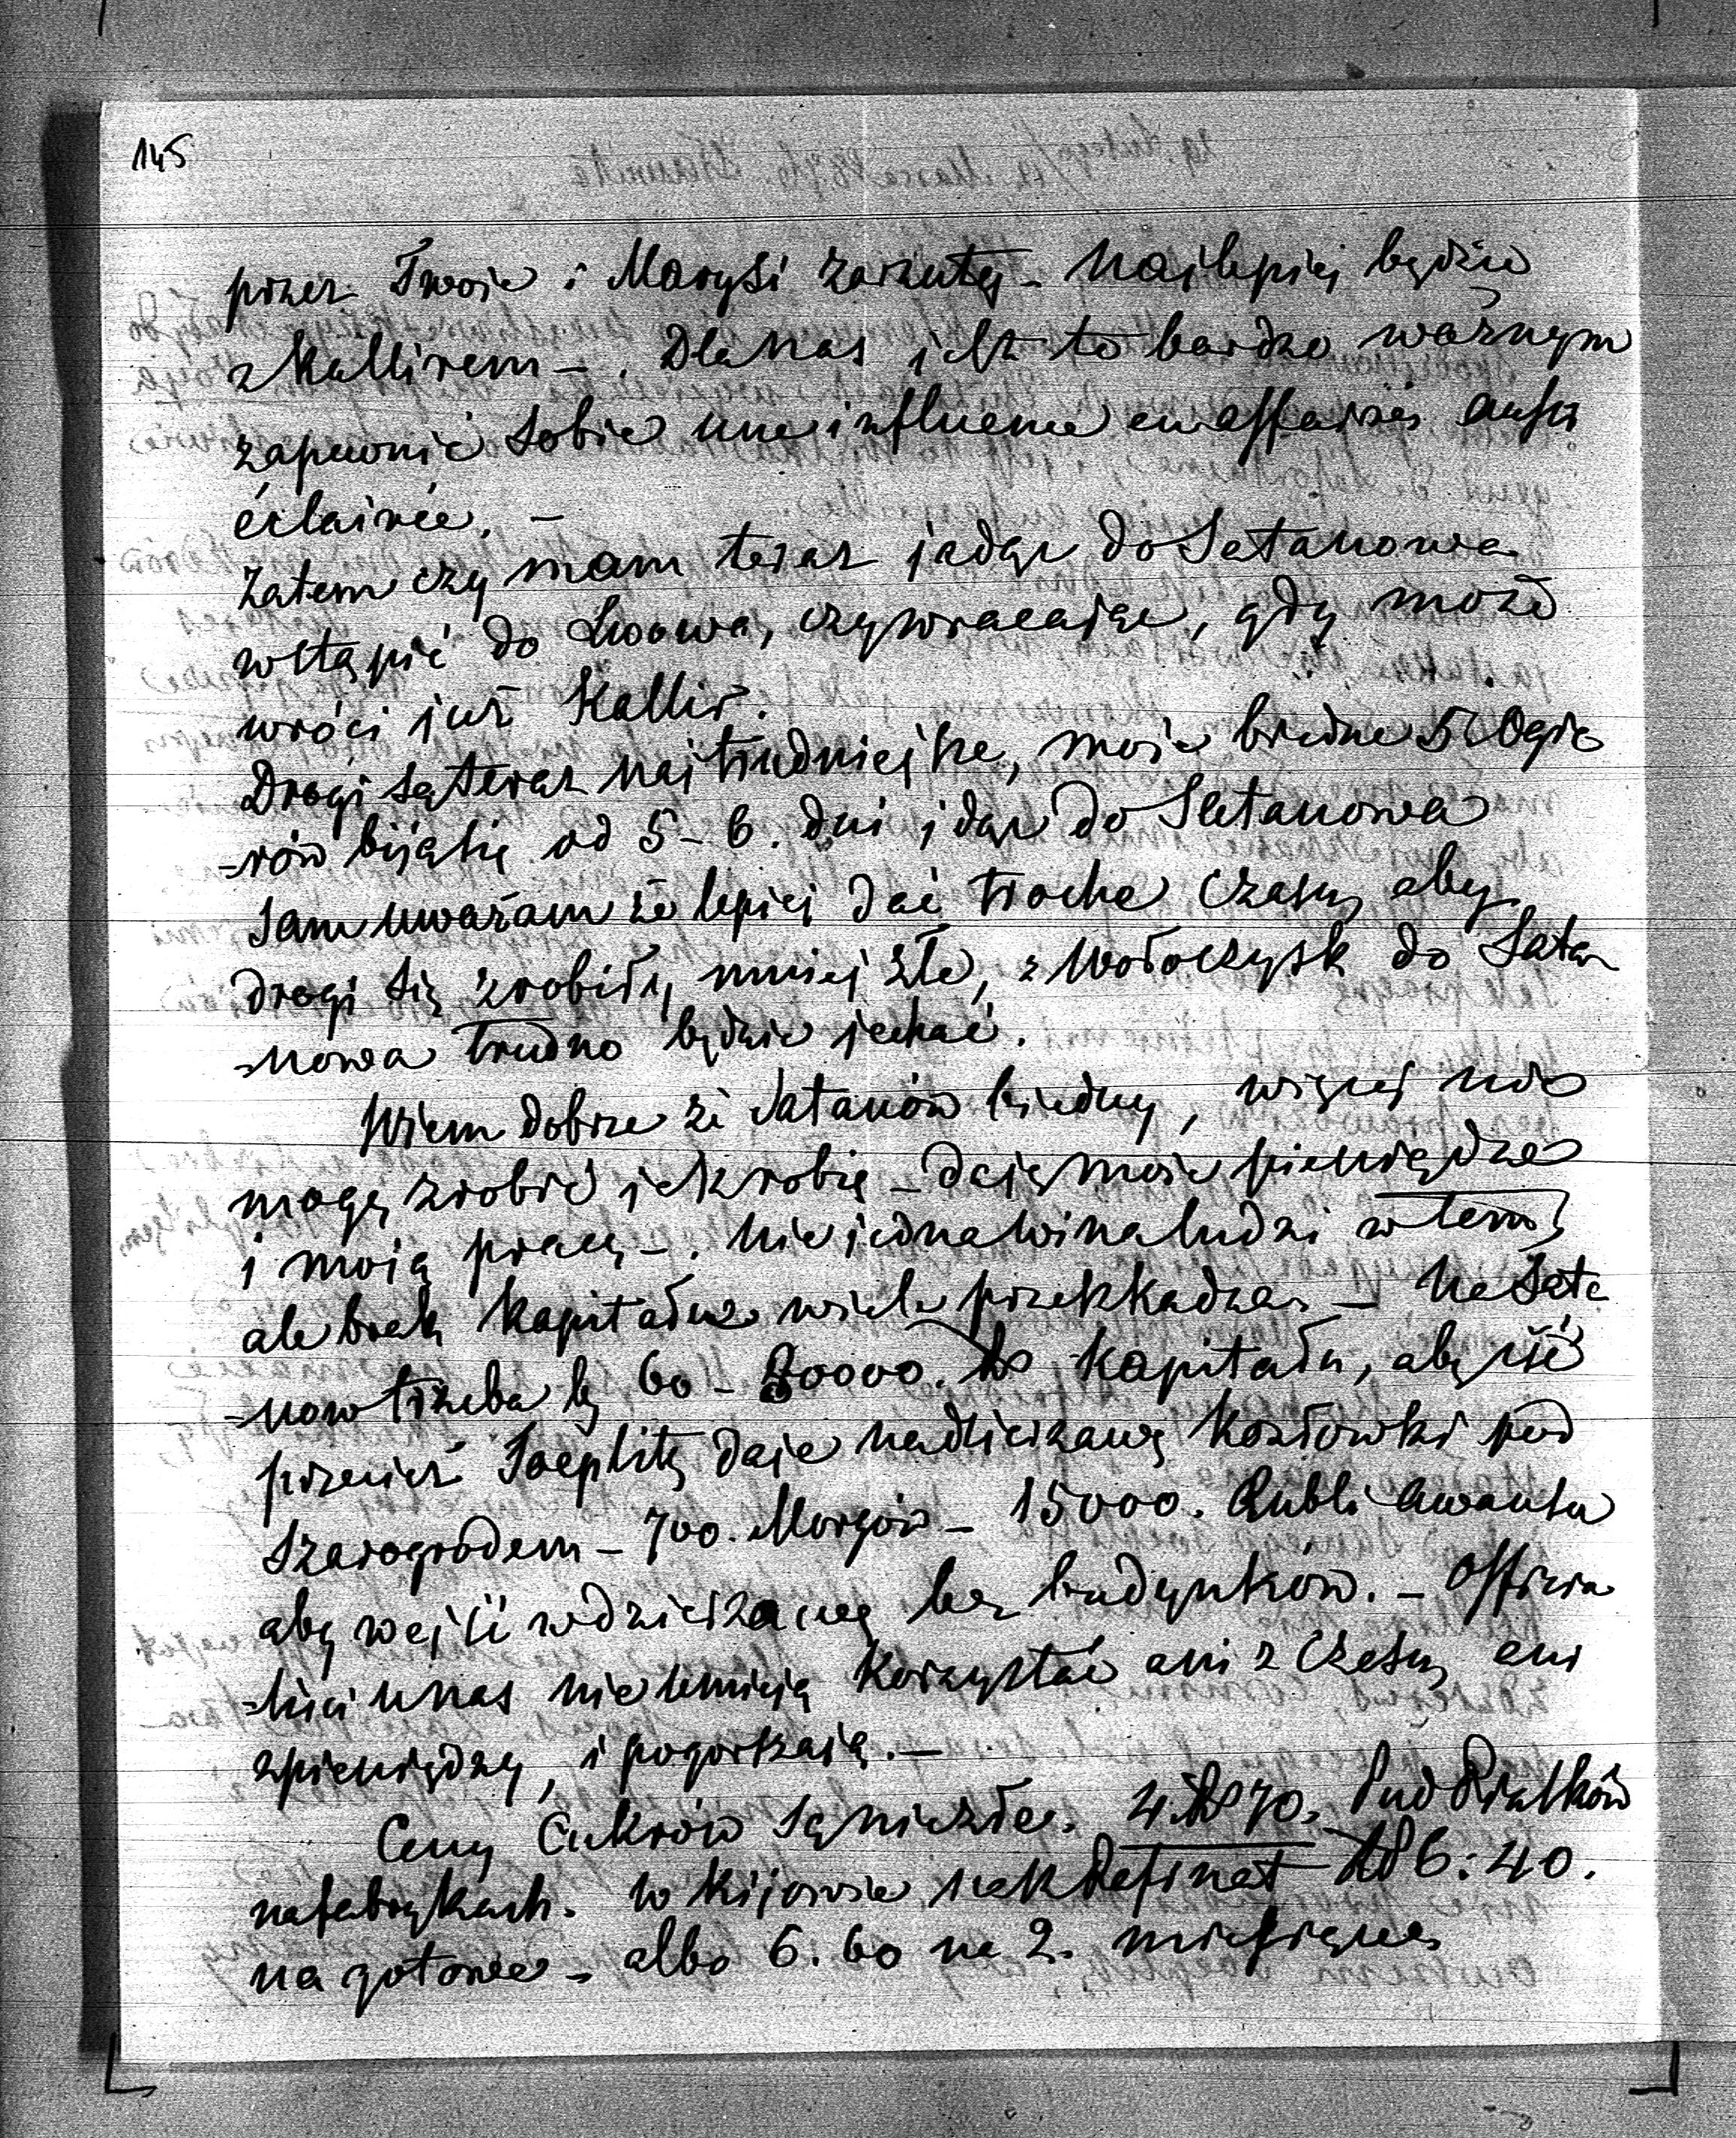 145
przez Twoie i Marysi zarzutę – Najlepiej będzie
z Kallirem –. Dla nas jest to bardzo ważnym
zapewnić sobie une influence en affaires aussi
éclairée. –
Zatem czy mam teraz jadąc do Satanowa
wstąpić do Lwowa, czy wracając, gdy może
wróci już Kallir.
Drogi są teraz najtrudniejsze, moje biedne 5 Ogie
-rów biją się od 5 – 6. dni idąc do Satanowa
Sam uważam że lepiej dać trochę czasu, aby
drogi się zrobiły mniej złe, z Wołoczysk do Sata
-nowa trudno będzie jechać.
Wiem dobrze że Satanów biedny, więcej nie
mogę zrobić jak robię – daję moje pieniądze
i moją pracę –. Nie jedna wina ludzi w tem,
ale brak kapitału wiele przeszkadza – Na Sata
-now trzeba by 60 – 80000. Rs kapitału, aby iść
przecież Toeplitz daje na dzierżawę Kozłowki pod
Szarogrodem – 700. Morgów – 15000. Rubli Awansu
aby wejść w dzierżawę bez budynków. – Officia
-liści u nas nie umieją korzystać ani z czasu, ani
z pieniędzy, i pogorszają. –
Ceny Cukrów są nie złe. 4. Rs 70. Pud Piasków
na fabrykach. w Kijowie Rafinat Rs 6:40.
na gotowe – albo 6. 60 na 2. miesiące